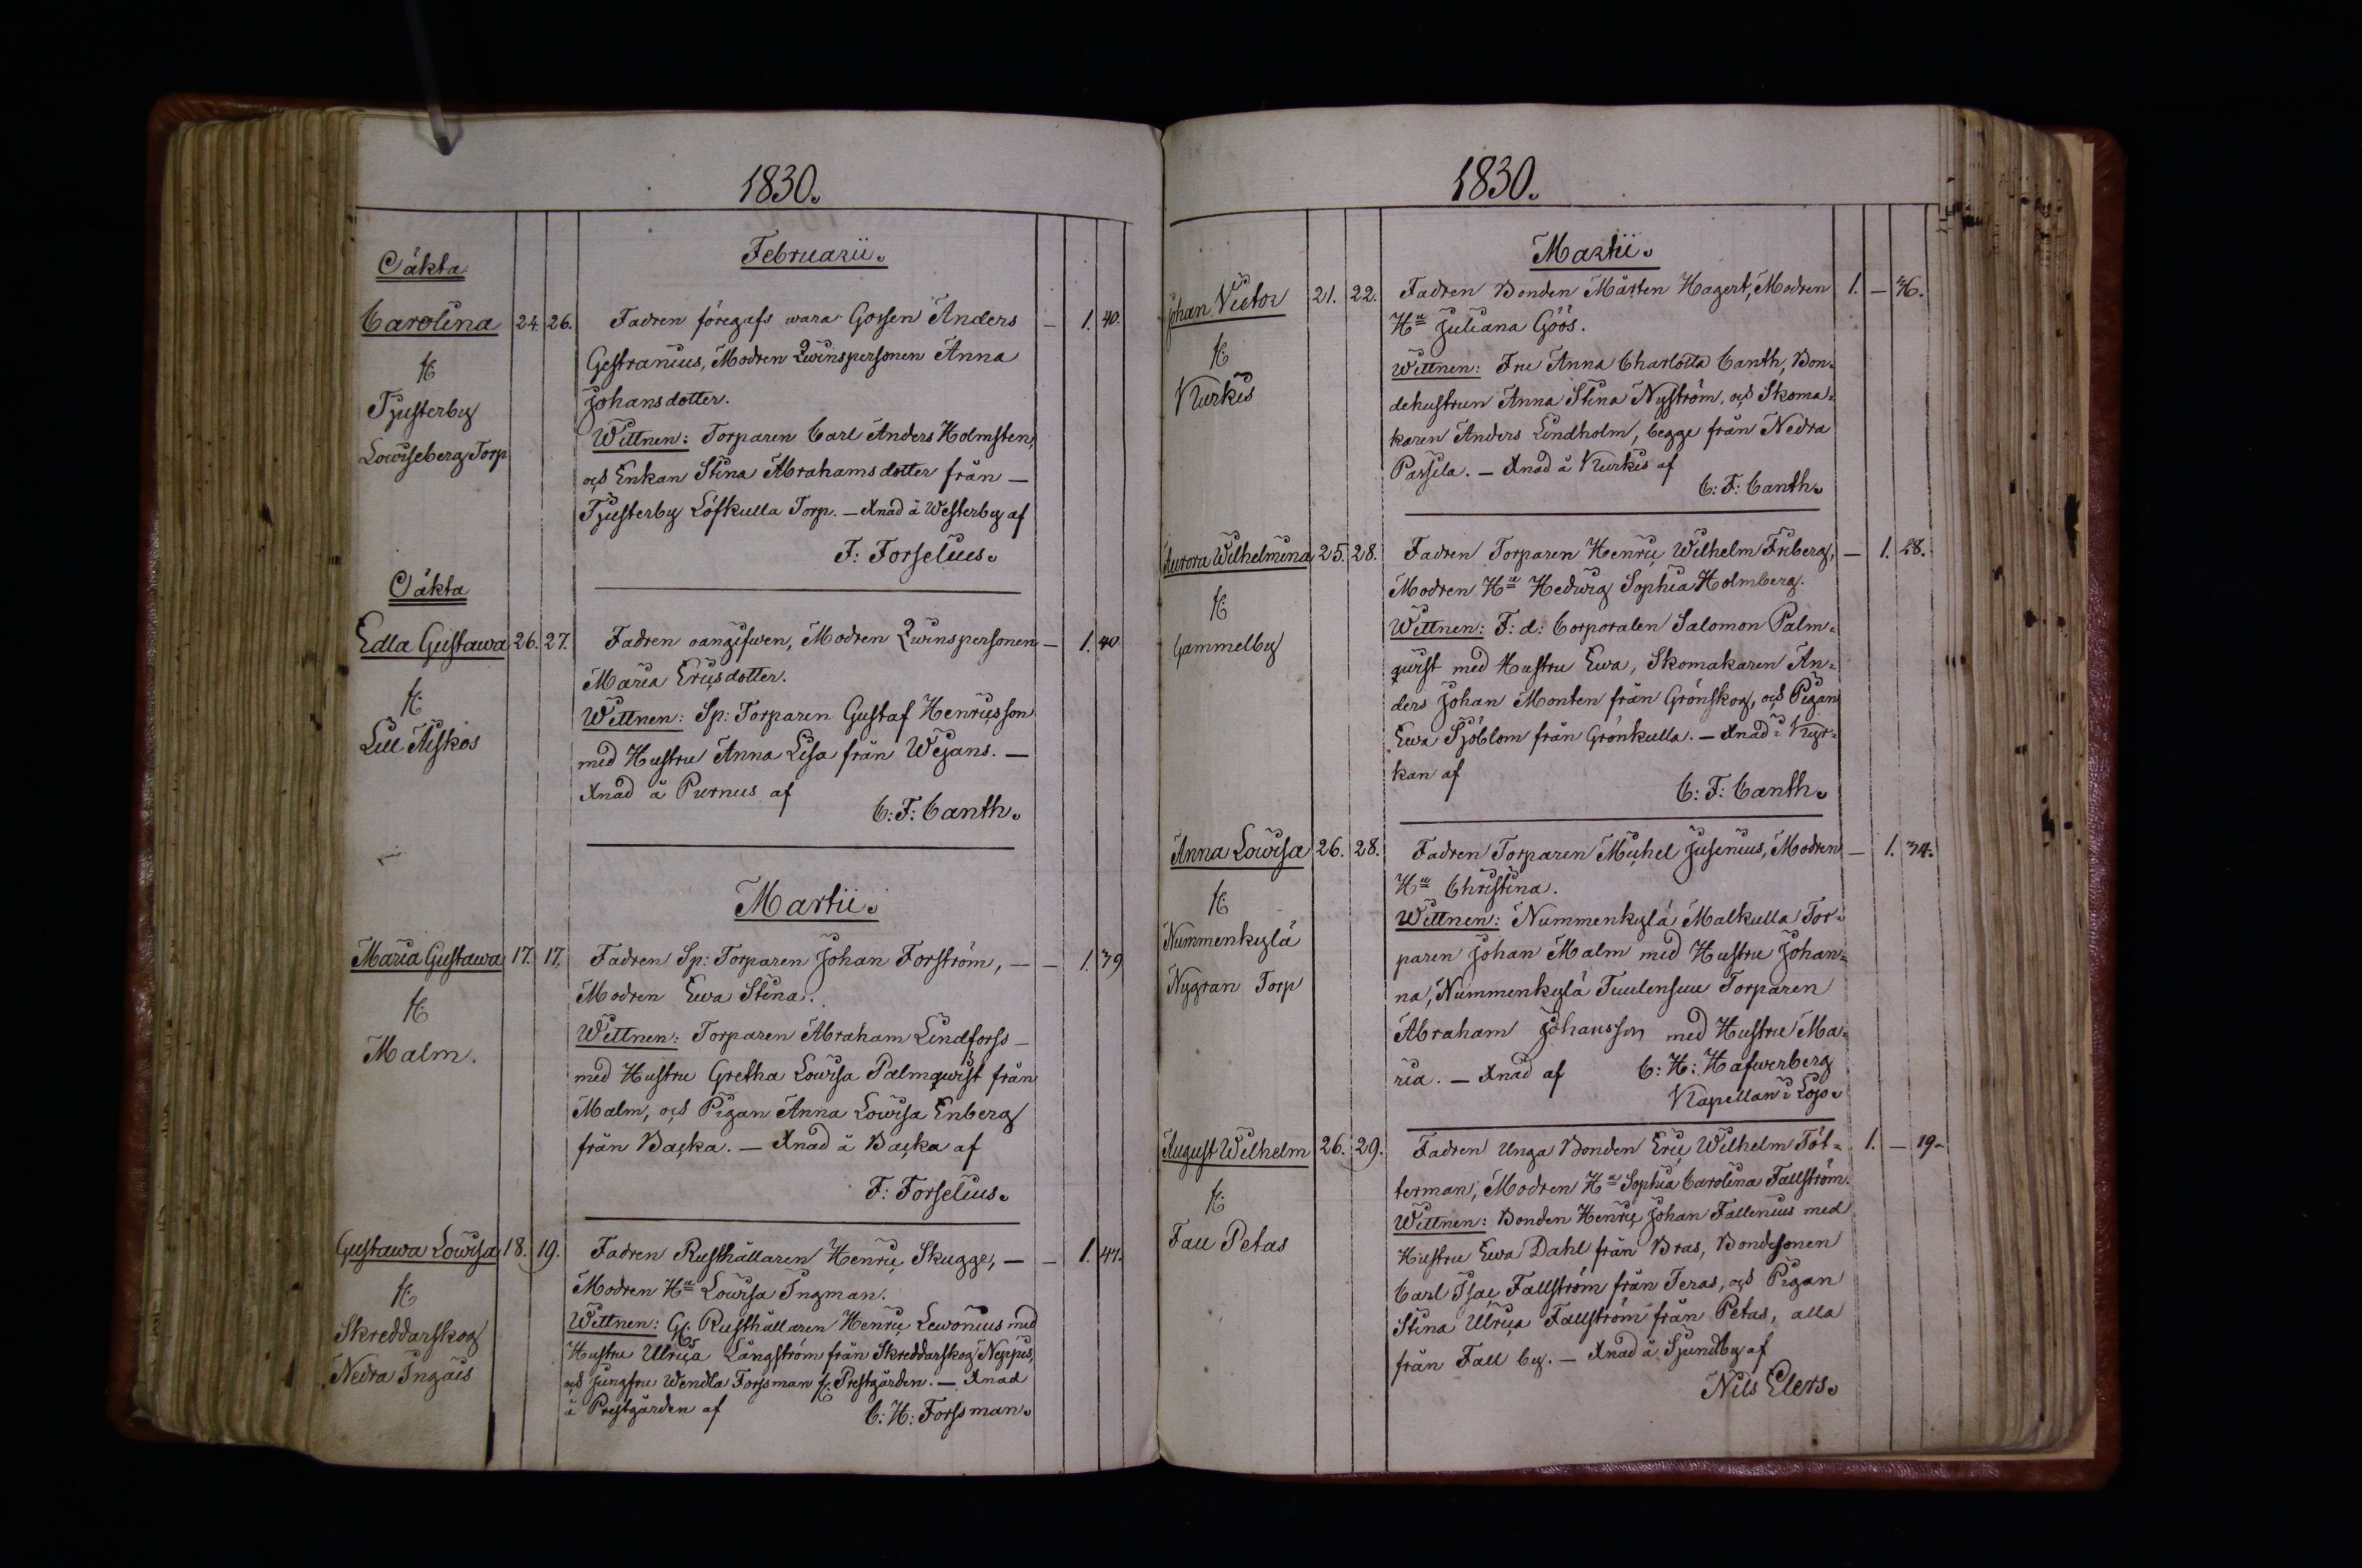 1830.
Februarii.
Oäkta
Carolina 24. 26. Fadren föregafs wara Gossen Anders — 1. 40.
fr: Gestranius, Modren Qwinspersonen Anna
Tjusterby Johansdotter.
Lowiseberg Torp Wittnen: Torparen Carl Anders Holmsten,
och Enkan Stina Abrahamsdotter från —
Tjusterby Löfkulla Torp. — Xnad å Westerby af
F: Forselius.
Oäkta
Edla Gustawa 26. 27. Fadren oangifwen, Modren Qwinspersonen — 1. 40
Maria Ericsdotter.
fr: Wittnen: Sp: Torparen Gustaf Henricsson
Lill Aiskos med Hustru Anna Lisa från Wejans. —
Xnad å Purnus af
C: F: Canth.
Martii.
Maria Gustawa 17. 17. Fadren Sp: Torparen Johan Forström, — — 1. 39
fr: Modren Ewa Stina.
Malm. Wittnen: Torparen Abraham Lindforss —
med Hustru Gretha Lowisa Palmqwist från
Malm, och Pigan Anna Lowisa Enberg
från Backa. — Xnad å Backa af
F: Forselius.
Gustawa Lowisa 18. 19. Fadren Rusthållaren Henric Skugge, — — 1. 41.
fr: Modren Hu Lowisa Ingman.
Skreddarskog Wittnen: Rusthållaren Henric Lewonius med
Nedra Ingäis Hustru Ulrica Långström från Skreddarskog Neppis,
och Jungfru Wendla Forssman fr: Prestgården. — Xnad
i Prestgården af C: H: Forssman.
1830.
Martii.
Johan Victor 21. 22. Fadren Bonden Mårten Hagert, Modren 1. — 36.
fr: Hu Juliana Göös.
Kurkis Wittnen: Fru Anna Charlotta Canth, Bon-
dehustrun Anna Stina Nyström, och Skoma-
karen Anders Lindholm, begge från Nedra
Passila. — Xnad å Kurkis af
C: F: Canth.
Aurora Wilhelmina 25. 28. Fadren Torparen Henric Wilhelm Friberg, — 1. 28.
fr: Modren Hu Hedwig Sophia Holmberg.
Gammelby Wittnen: F: d: Corporalen Salomon Palm-
qwist med Hustru Ewa, Skomakaren An-
ders Johan Monten från Grönskog, och Pigan
Ewa Sjöblom från Grönkulla. — Xnad i Kyr-
kan af
C: F: Canth.
Anna Lowisa 26. 28. Fadren Torparen Michel Jusenius, Modren — 1. 34.
fr: Hu Christina.
Nummenkylä Wittnen: Nummenkylä Malkulla Tor-
Nygran Torp paren Johan Malm med Hustru Johan-
na, Nummenkylä Tuulensuu Torparen
Abraham Johansson med Hustru Ma-
ria. — Xnad af C: H: Hafwerberg
Kapellan i Lojo.
August Wilhelm 26. 29. Fadren Unga Bonden Eric Wilhelm Töt- 1. — 19.
fr: terman, Modren Hu Sophia Carolina Fallström.
Fall Petas Wittnen: Bonden Henric Johan Fallenius med
Hustru Ewa Dahl från Bras, Bondesonen
Carl Isac Fallström från Jeras, och Pigan
Stina Ulrica Fallström från Petas, alla
från Fall by. — Xnad å Sjundby af
Nils Elers.